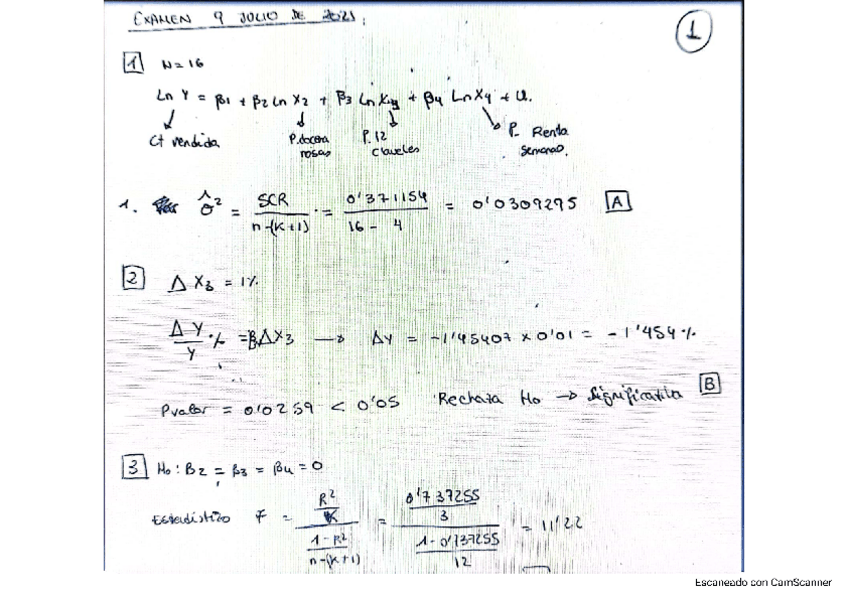 EXAMEN 9 JULIO DE 2021.
1
1 N=16
Ln Y = β1 + β2 Ln X2 + β3 Ln X3 + β4 Ln X4 + u.
Ct vendida P. docena rosas P. 12 claveles P. Renta semanal.
1. σ̂² = SCR / n-(k+1) = 0'371154 / 16 - 4 = 0'0309295 A
2 Δ X3 = 1%
ΔY/Y % = βΔX3 → ΔY = -1'45407 x 0'01 = -1'454%
Pvalor = 0'0259 < 0'05 Rechaza Ho → Significativa B
3 Ho: β2 = β3 = β4 = 0
Estadístico F = R²/K / 1-R²/n-(k+1) = 0'737255/3 / 1-0'737255/12 = 11'22
Escaneado con CamScanner